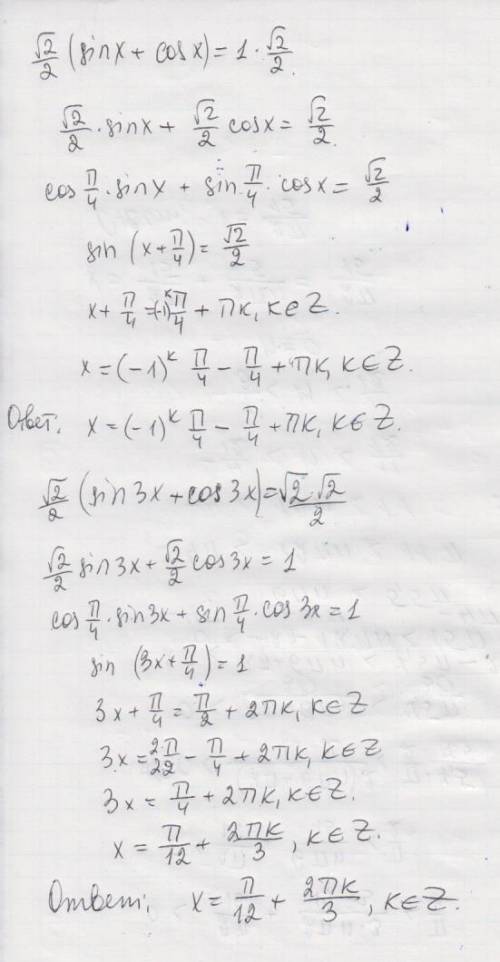 √2/2 (sinx + cosx) = 1 · √2/2.
√2/2 · sinx + √2/2 cosx = √2/2.
cos π/4 · sinx + sin π/4 · cosx = √2/2
sin (x + π/4) = √2/2
x + π/4 = (-1)^k π/4 + πk, k∈Z.
x = (-1)^k π/4 - π/4 + πk, k∈Z.
Ответ. x = (-1)^k π/4 - π/4 + πk, k∈Z.
√2/2 (sin3x + cos3x) = √2·√2/2
√2/2 sin3x + √2/2 cos3x = 1
cos π/4 · sin3x + sin π/4 · cos3x = 1
sin (3x + π/4) = 1
3x + π/4 = π/2 + 2πk, k∈Z
3x = 2·π/2·2 - π/4 + 2πk, k∈Z
3x = π/4 + 2πk, k∈Z.
x = π/12 + 2πk/3, k∈Z.
Ответ: x = π/12 + 2πk/3, k∈Z.